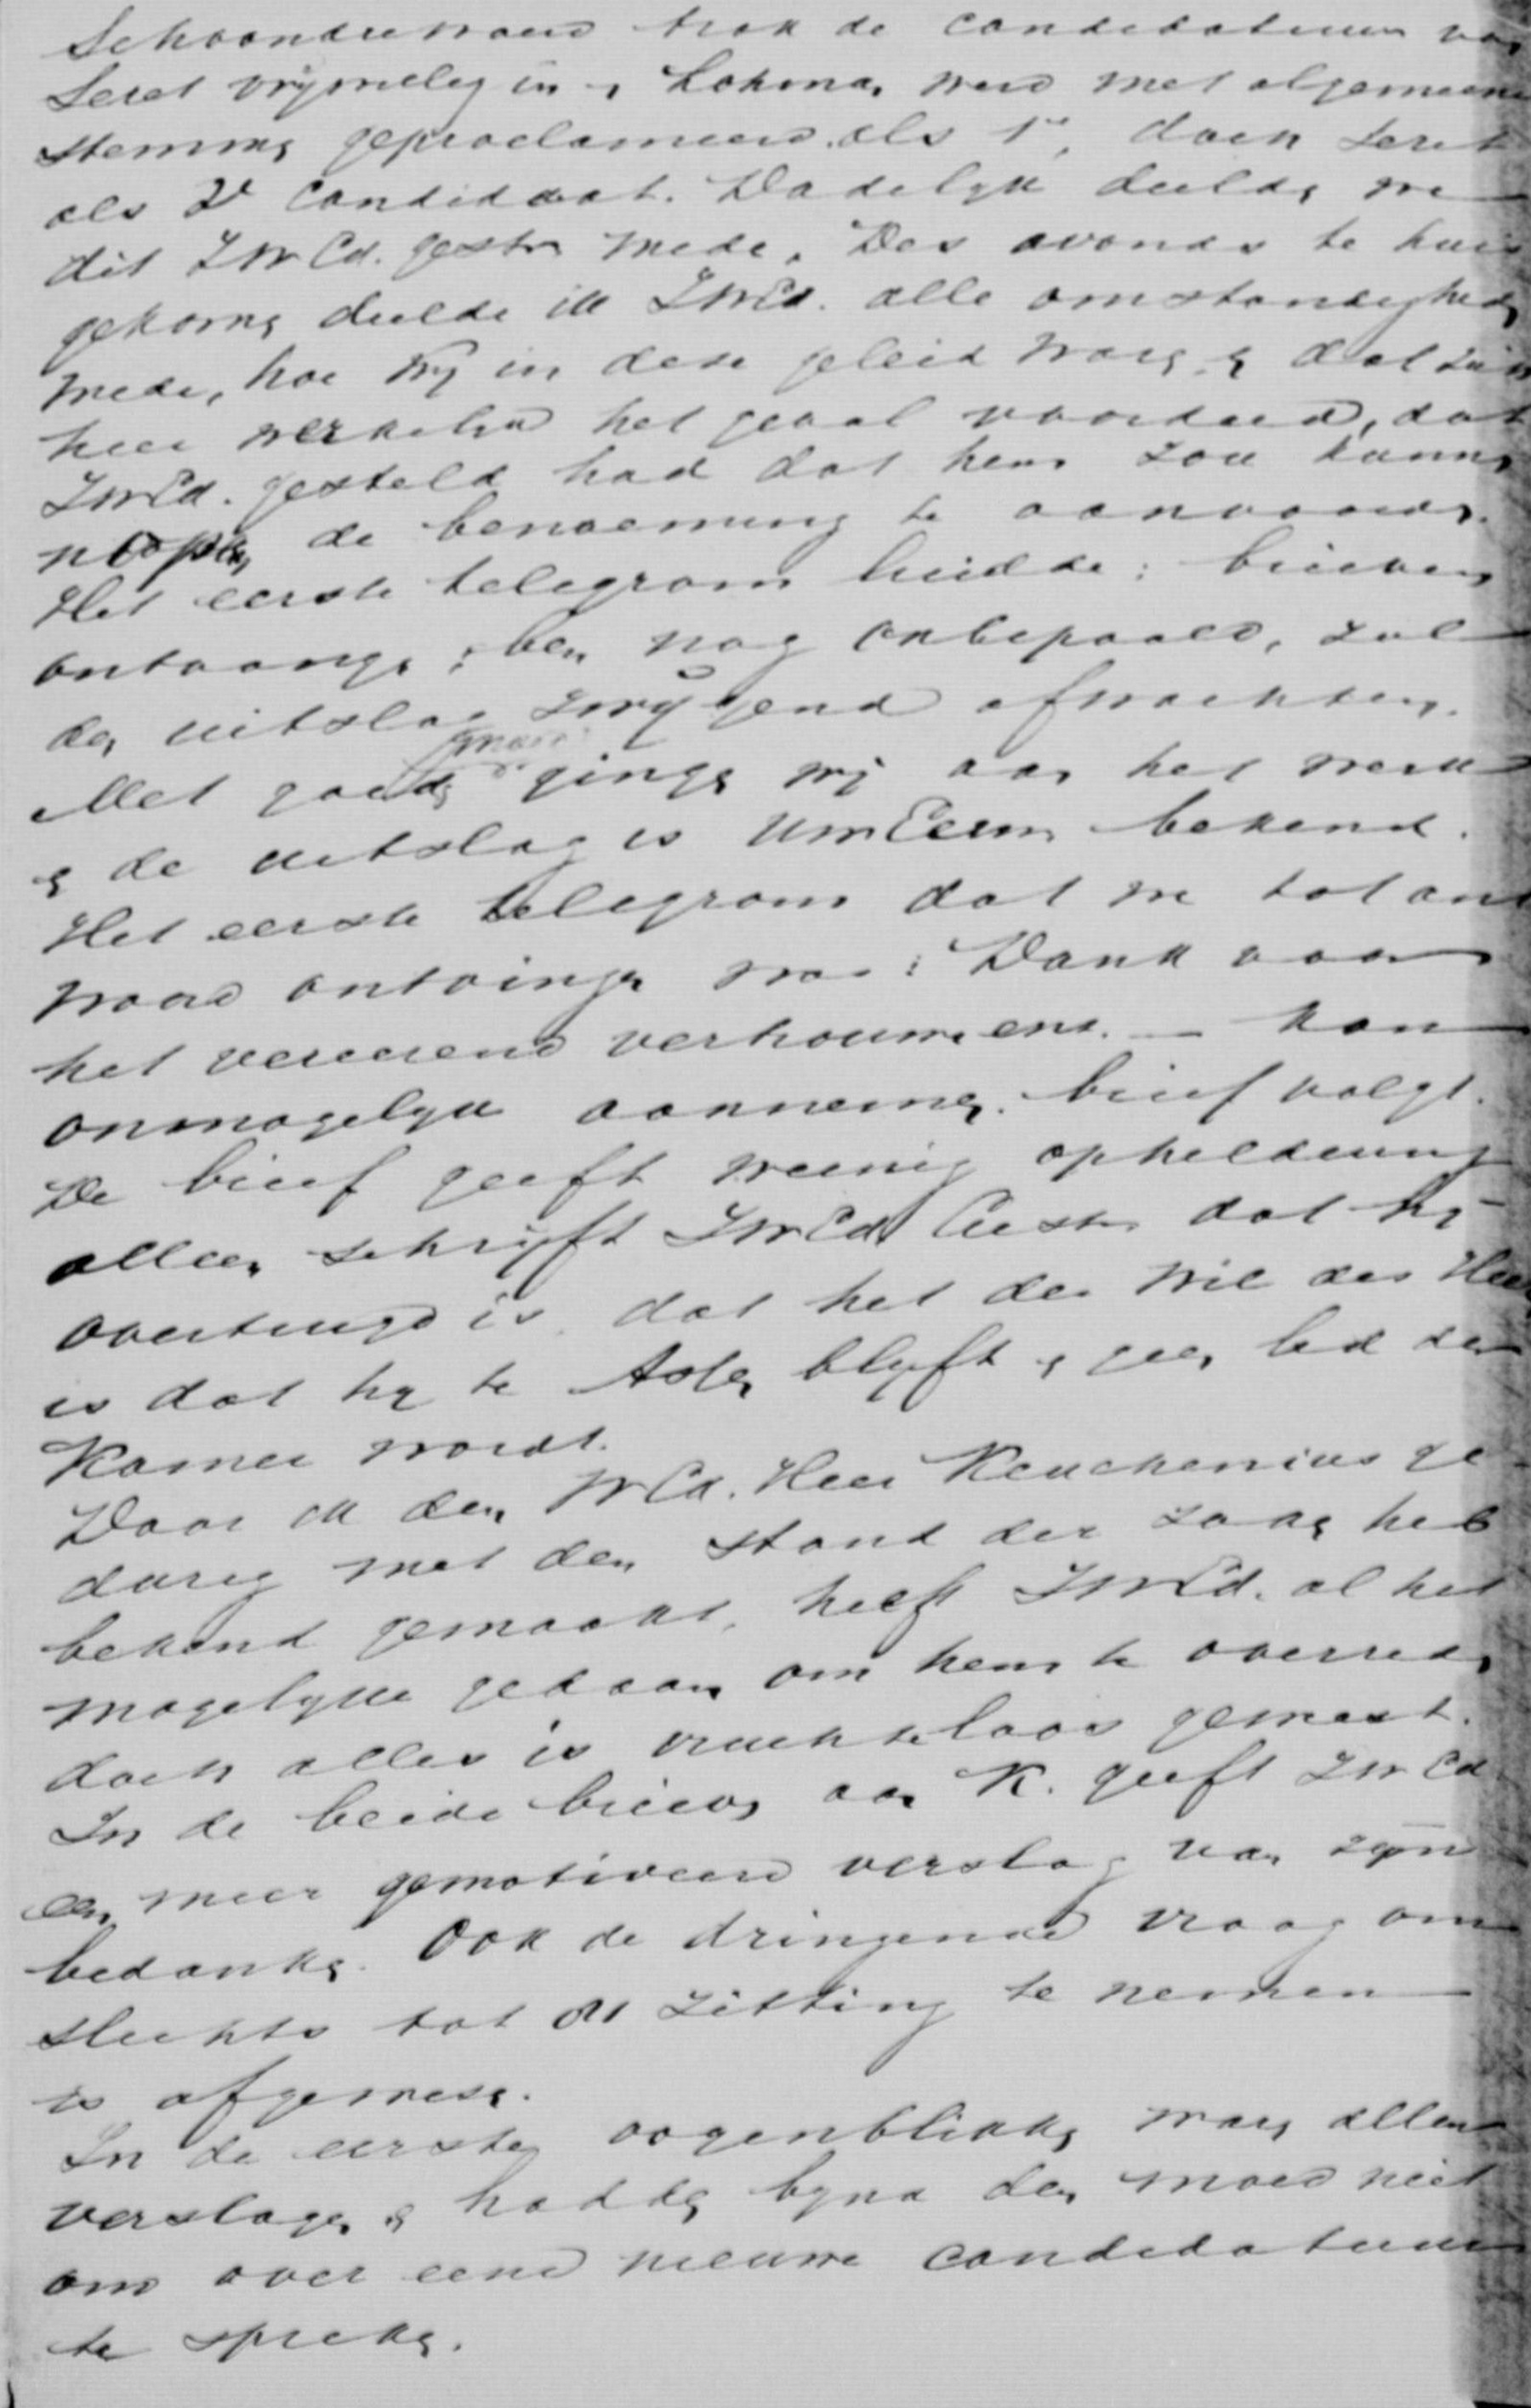 Schoondrewoerd trok de candidatuur van
Seret vrijwillig in & Lohman werd met algemeene
stemming geproclameerd als 1e, doch Seret
als 2e Candidaat. Dadelyk deelden we
dit ZWEd. gestr. mede. Des avonds te huis
gekomen deelde ik ZWEd. alle omstandigheden
mede, hoe wij in deze geleid waren & dat zich
hier werkelijk het geval voordeed, dat
ZWEd. gesteld had dat hem zou kunnen
nopen de benoeming te aanvaarden.
Het eerste telegram luidde: brieven
ontvangen; ben nog onbepaald, zal
den uitslag zwijgend afwachten.
Met goeden moed gingen wij aan het werk
& de uitslag is UwEerw bekend.
Het eerste telegram dat we tot ant
woord ontvingen was: Dank voor
het vereerend vertrouwen enz. – kan
onmogelyk aannemen. brief volgt.
De brief geeft weinig opheldering
alleen schrijft ZWEd Gestr. dat hij
overtuigd is, dat het de wil des Heeren
is dat hy te Asten blyft & geen lid der
Kamer wordt.
Daar ik den WEd. Heer Keuchenius ge
durig met den stand der zaak heb
bekend gemaakt, heeft ZWEd. al het
mogelyke gedaan om hem te overreden
doch alles is vruchteloos geweest.
In de beide brieven aan K. geeft ZWEd
een meer gemotiveerd verslag van zijn
bedanken. Ook de dringende vraag om
slechts tot zitting te nemen
is afgewezen.
In de eerste oogenblikken waren allen
verslagen & hadden byna den moed niet
om over eene nieuwe candidatuur
te spreken.